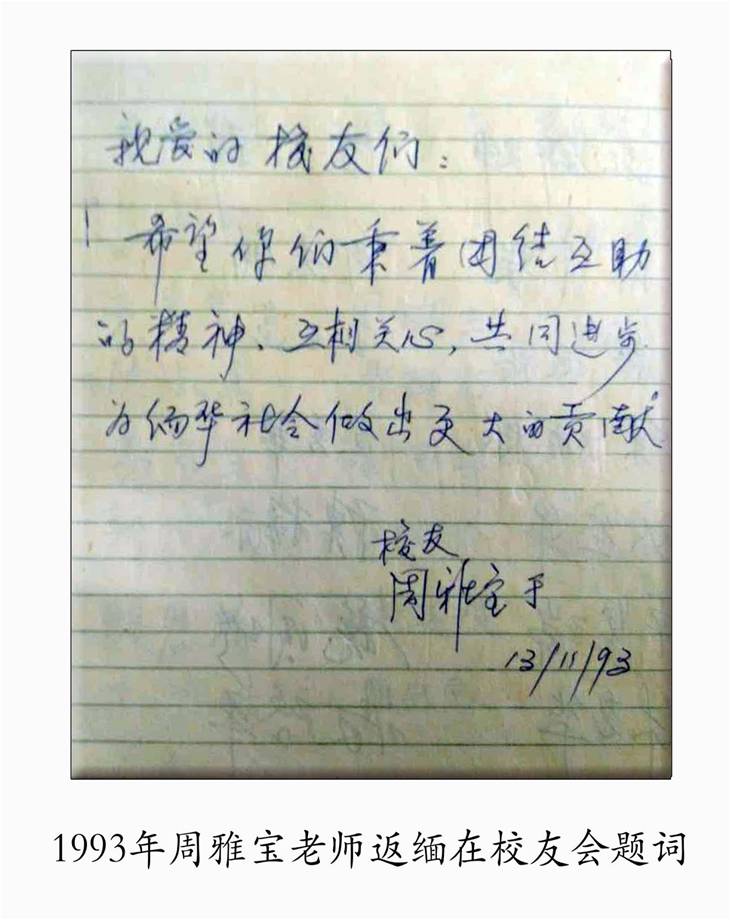 我爱的校友们：
希望你们秉着团结互助
的精神、互相关心，共同进步
为缅华社会做出更大的贡献
校友
周雅宝于
13/11/93
1993年周雅宝老师返缅在校友会题词